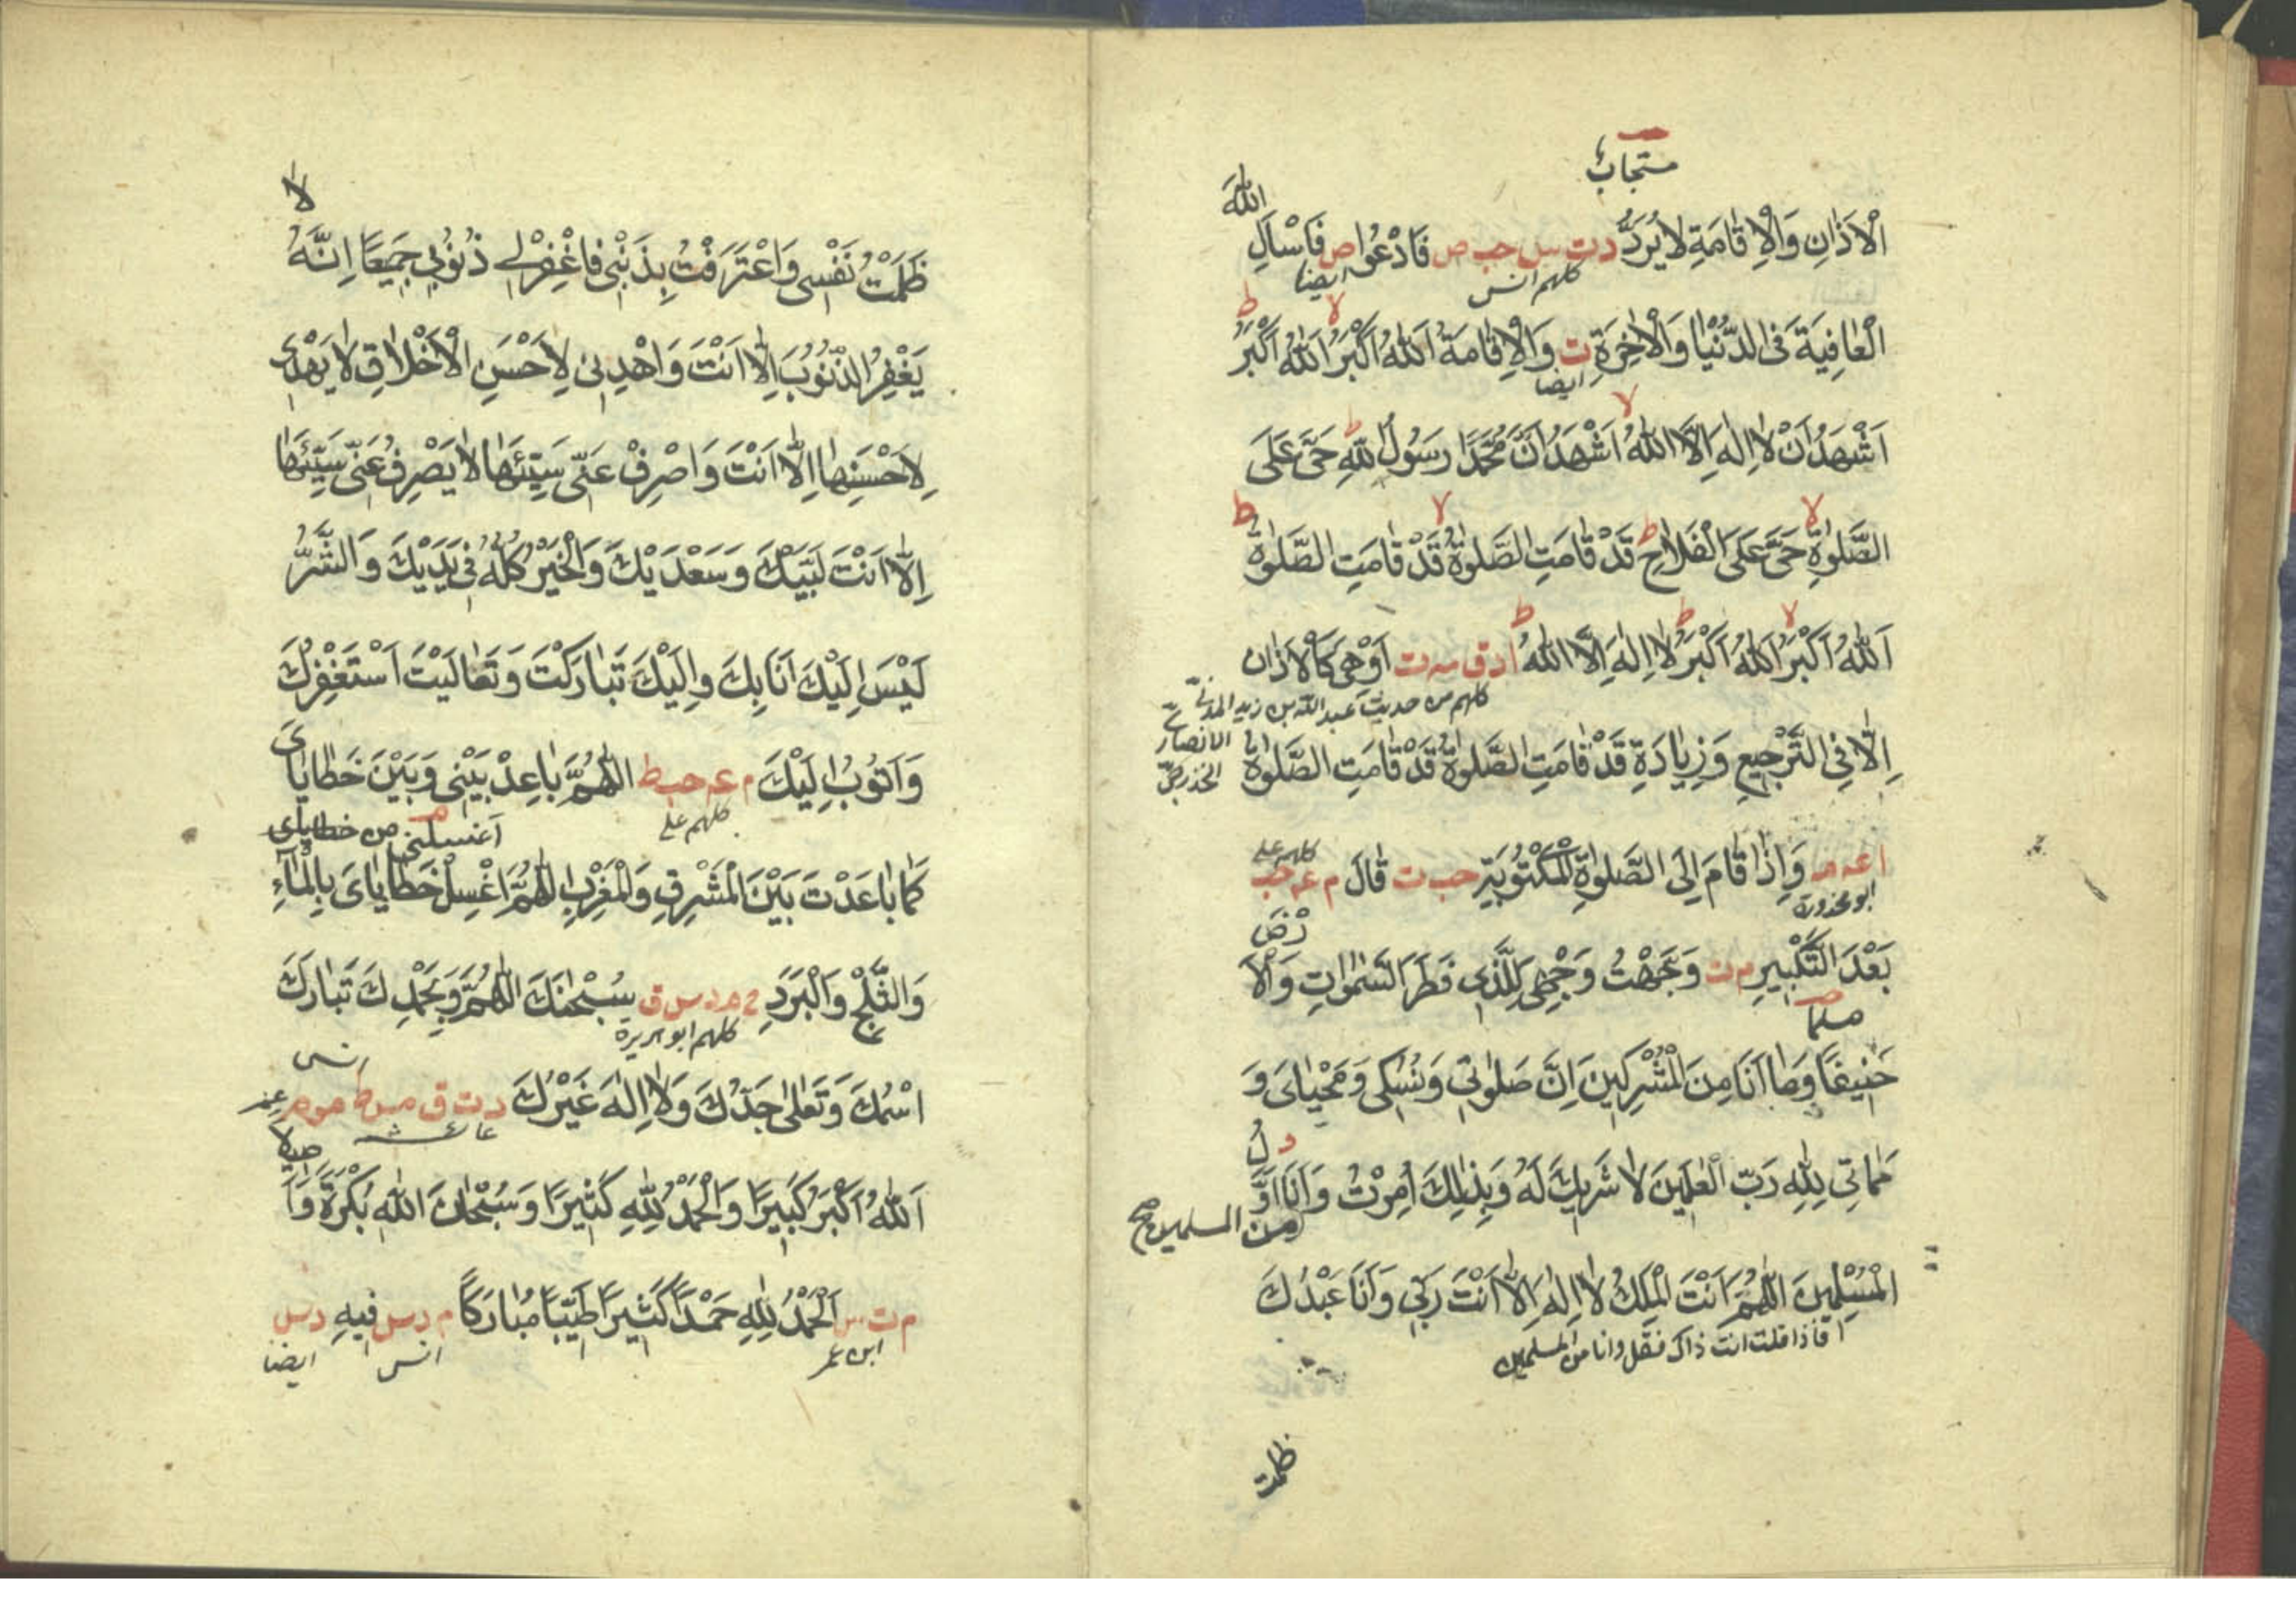 مستجاب
الله
اَلْاَذَانِ وَالْاِقَامَةِ لَا يُرَدُّ د ت س حب ص فَادْعُوا ص فَاسْاَلِ
كلهم انس ايضا
الْعَافِيَةَ فِى الدُّنْيَا وَالْاٰخِرَةِ ت وَالْاِقَامَةُ اَللهُ اَكْبَرُ اَللهُ اَكْبَرُ
ايضا
اَشْهَدُ اَنْ لَا اِلٰهَ اِلَّا اللهُ اَشْهَدُ اَنَّ مُحَمَّدًا رَسُولُ اللهِ حَىَّ عَلَى
الصَّلٰوةِ حَىَّ عَلَى الْفَلَاحِ قَدْ قَامَتِ الصَّلٰوةُ قَدْ قَامَتِ الصَّلٰوةُ
اَللهُ اَكْبَرُ اَللهُ اَكْبَرُ لَا اِلٰهَ اِلَّا اللهُ ا د ق مه ت اَوْ هِىَ كَالْاَذَان
كلهم من حديث عبد الله بن زيد المدني
الانصاري
الخزرجي
اِلَّا فِى التَّرْجِيعِ وَزِيَادَةِ قَدْ قَامَتِ الصَّلٰوةُ قَدْ قَامَتِ الصَّلٰوةُ
ا عه مه وَاِذَا قَامَ اِلَى الصَّلٰوةِ الْمَكْتُوبَةِ حب ت قَالَ م عه حب
ابو محذورة
كلهم علي
رْضَ
بَعْدَ التَّكْبِيرِ م ت وَجَّهْتُ وَجْهِىَ لِلَّذِى فَطَرَ السَّمٰوَاتِ وَالْاَ
مسلما
حَنِيفًا وَمَا اَنَا مِنَ الْمُشْرِكِينَ اِنَّ صَلٰوتِى وَنُسُكِى وَمَحْيَاىَ وَ
د لُ
مَمَاتِى لِلهِ رَبِّ الْعٰلَمِينَ لَا شَرِيكَ لَهُ وَبِذٰلِكَ اُمِرْتُ وَاَنَا اَوَّ
من المسلمين صح
الْمُسْلِمِينَ اَللّٰهُمَّ اَنْتَ الْمَلِكُ لَا اِلٰهَ اِلَّا اَنْتَ رَبِّى وَاَنَا عَبْدُكَ
فاذا قلت انت ذاك فقل وانا من المسلمين
ظلمت
لَا
ظَلَمْتُ نَفْسِى وَاعْتَرَفْتُ بِذَنْبِى فَاغْفِرْ لِى ذُنُوبِى جَمِيعًا اِنَّهُ
يَغْفِرُ الذُّنُوبَ اِلَّا اَنْتَ وَاهْدِنِى لِاَحْسَنِ الْاَخْلَاقِ لَا يَهْدِى
لِاَحْسَنِهَا اِلَّا اَنْتَ وَاصْرِفْ عَنِّى سَيِّئَهَا لَا يَصْرِفُ عَنِّى سَيِّئَهَا
اِلَّا اَنْتَ لَبَّيْكَ وَسَعْدَيْكَ وَالْخَيْرُ كُلُّهُ فِى يَدَيْكَ وَالشَّرُّ
لَيْسَ اِلَيْكَ اَنَا بِكَ وَاِلَيْكَ تَبَارَكْتَ وَتَعَالَيْتَ اَسْتَغْفِرُكَ
وَاَتُوبُ اِلَيْكَ م عه حب ط اللّٰهُمَّ بَاعِدْ بَيْنِى وَبَيْنَ خَطَايَاىَ
كلهم علي
اغسلني من خطاياى
كَمَا بَاعَدْتَ بَيْنَ الْمَشْرِقِ وَالْمَغْرِبِ اللّٰهُمَّ اغْسِلْ خَطَايَاىَ بِالْمَاءِ
وَالثَّلْجِ وَالْبَرَدِ خ م د س ق سُبْحٰنَكَ اللّٰهُمَّ وَبِحَمْدِكَ تَبَارَكَ
كلهم ابو هريرة
انس
اسْمُكَ وَتَعَالٰى جَدُّكَ وَلَا اِلٰهَ غَيْرُكَ د ت ق مس ط مو م
عائشة
صيلا
اَللهُ اَكْبَرُ كَبِيرًا وَالْحَمْدُ لِلهِ كَثِيرًا وَسُبْحَانَ اللهِ بُكْرَةً وَاَ
م ت س اَلْحَمْدُ لِلهِ حَمْدًا كَثِيرًا طَيِّبًا مُبَارَكًا م د س فِيهِ د س
ابن عمر انس ايضا